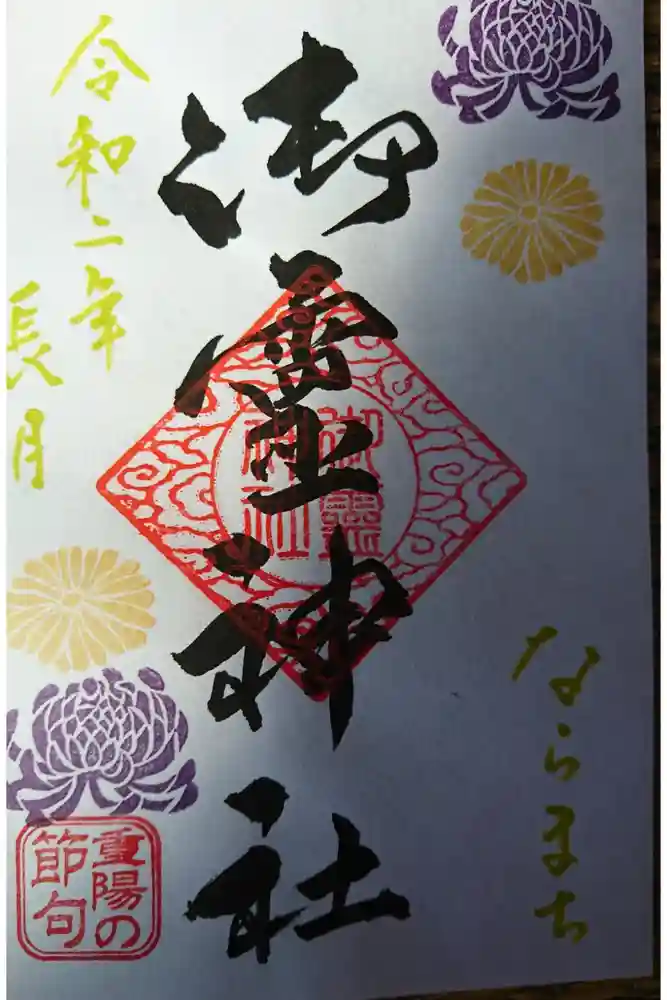 ならまち
御霊神社
御靈
神社
令和二年
長月
重陽の
節句